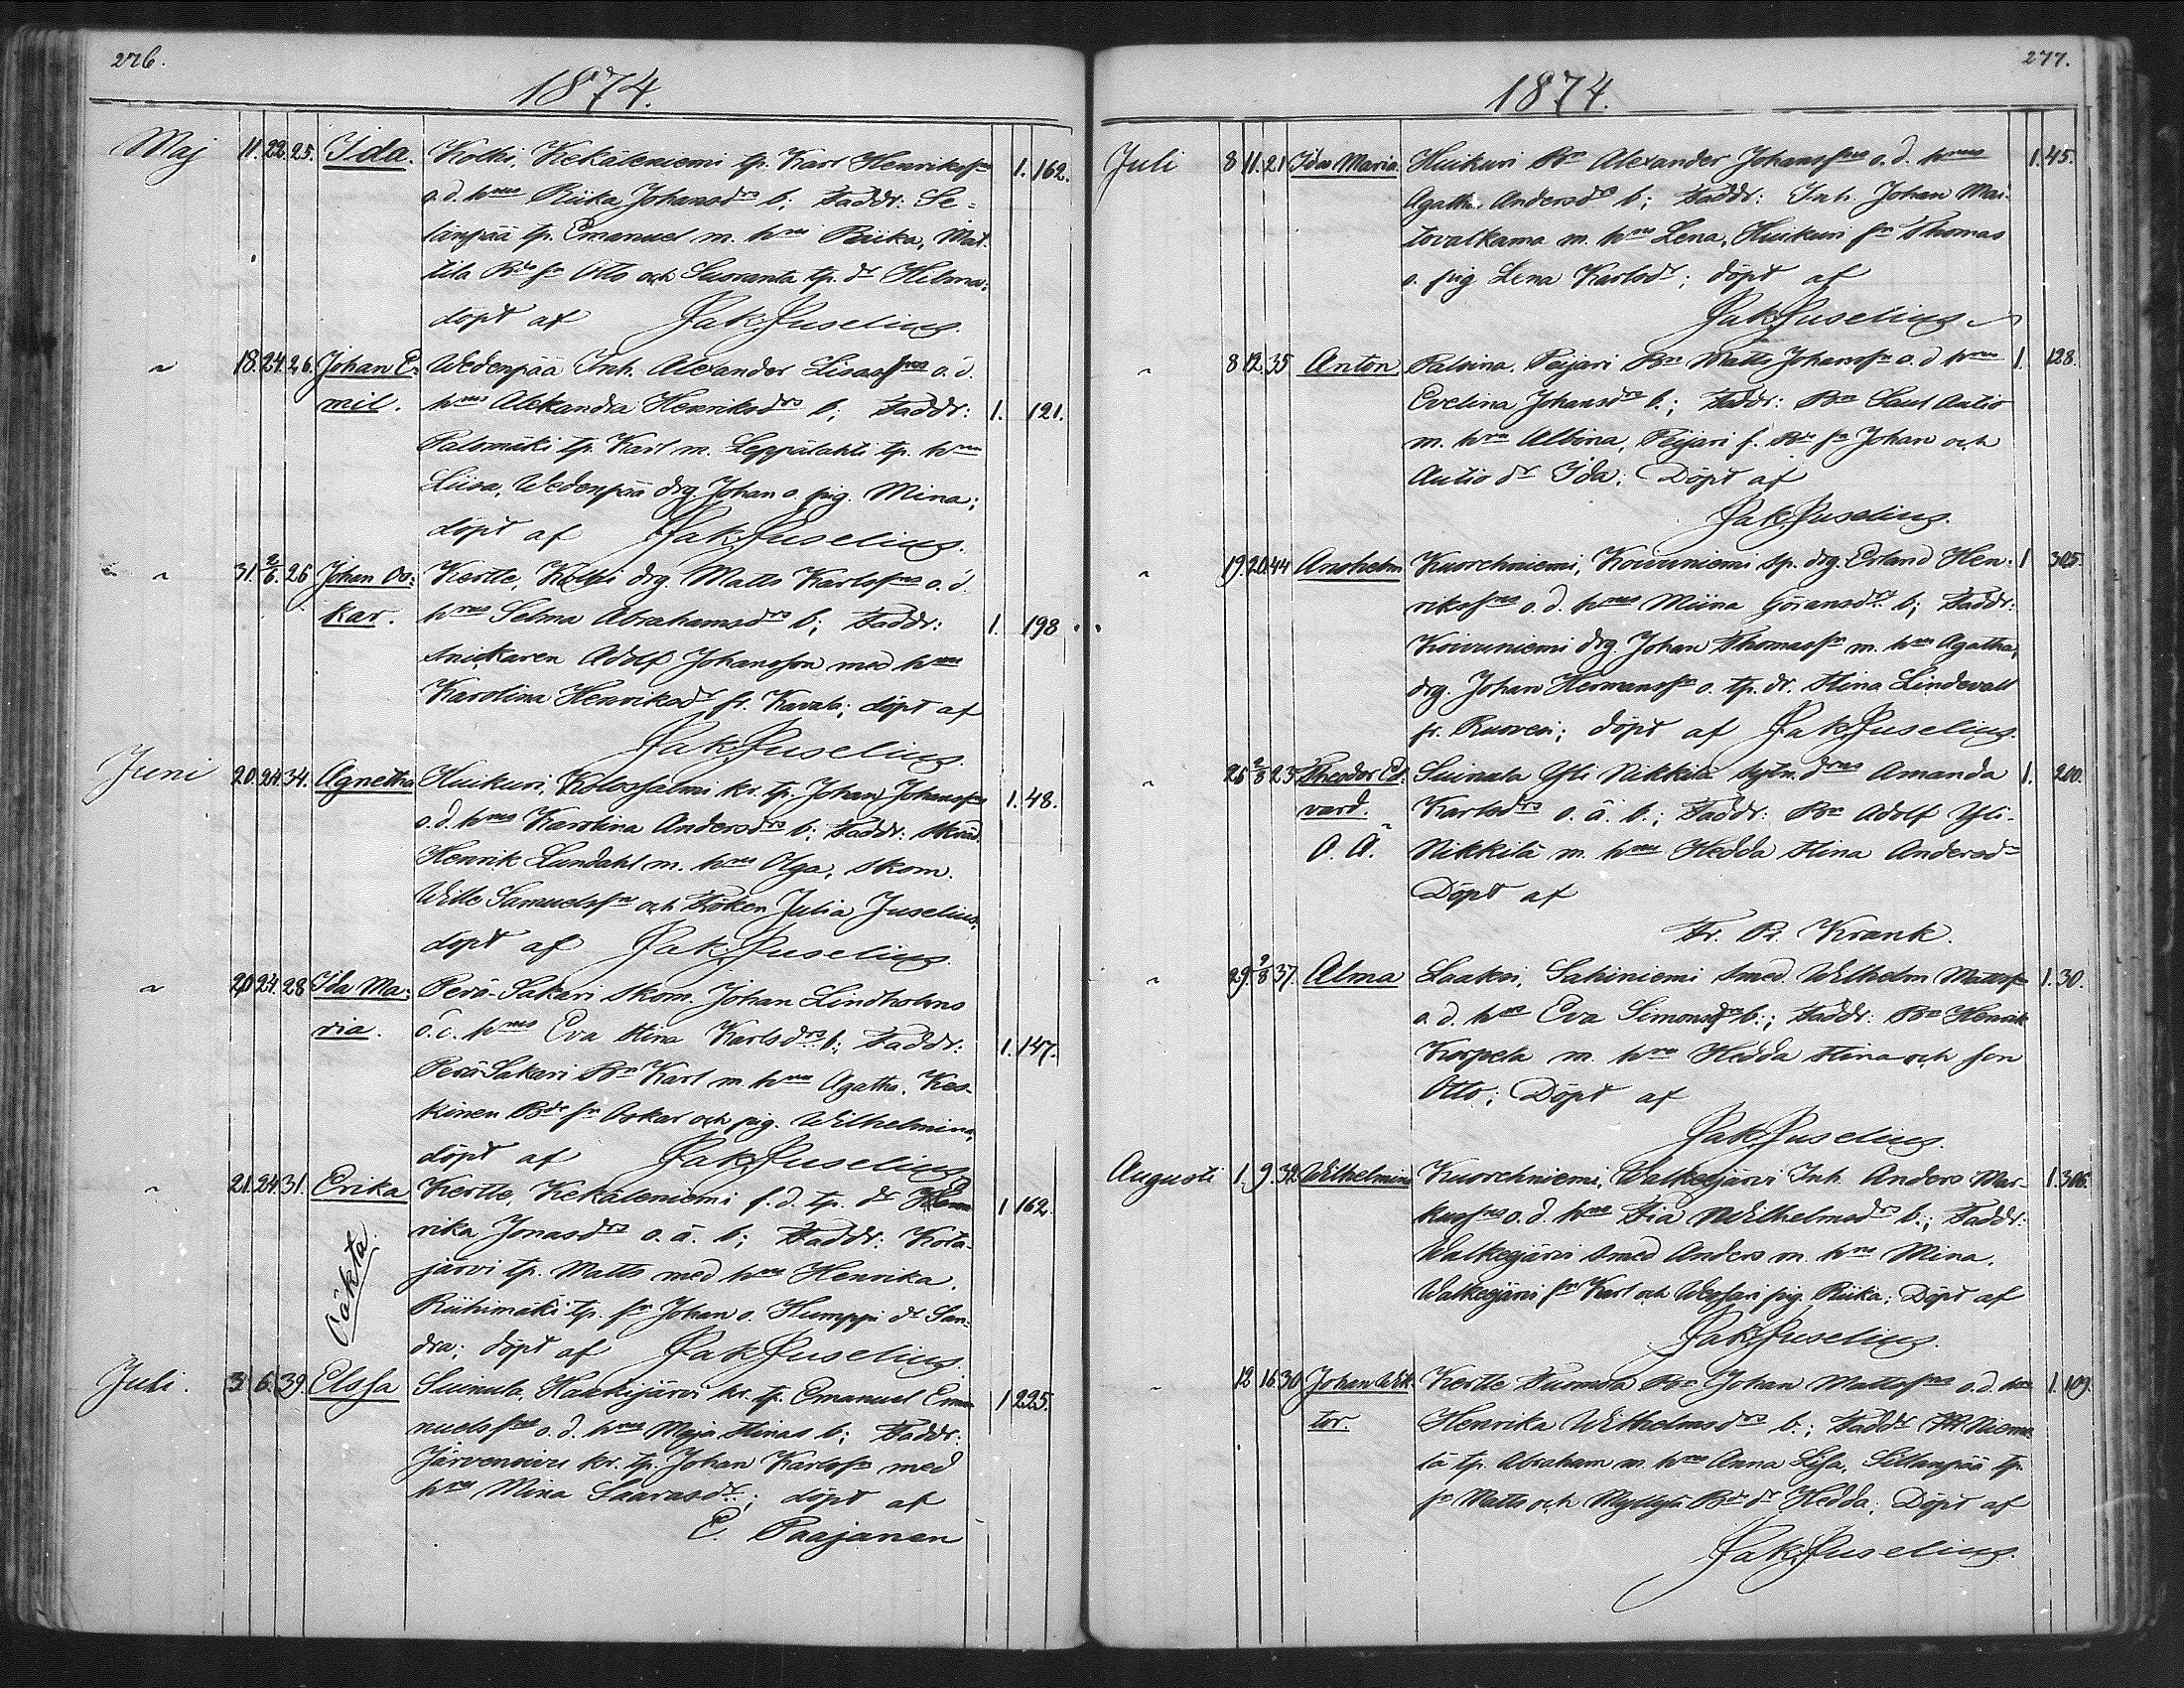 276.
1874.
Maj 11. 22. 25. Ida. Kolhi, Kekäleniemi tp. Karl Henrikssn 1. 162.
o. d. hns Riika Johansdrs b; Faddr: Se-
länpää tp. Emanuel m. hru Riika, Mat-
tila Bde sn Otto och Suoranta tp. dr Hilma;
döpt af Jak. Juselius.
" 18. 24. 26. Johan E- Wedenpää Inh. Alexander Lisassns o. d.
mil. hns Alexandra Henriksdrs b; Faddr: 1. 121.
Palomäki tp. Karl m. Leppälahti tp. hru
Liisa, Wedenpää drg. Johan o. pig. Mina;
döpt af Jak. Juselius.
" 31. 2/6. 26 Johan Os- Kertte, Kolhi drg. Matts Karlssns o. d.
kar. hrus Selma Abrahamsdrs b; Faddr: 1. 198
snickaren Adolf Johansson med hru
Karolina Henriksdr fr. Kavala; döpt af
Jak. Juselius.
Juni 20. 24. 34. Agnetha Huikuri, Kolossalmi kr. tp. Johan Johanssns 1. 48.
o. d. hns Karolina Andersdrs b; Faddr: skräd.
Henrik Lundahl m. hru Olga, skom.
Wille Samuelssn och Fröken Julia Juselius,
döpt af Jak. Juselius.
" 20 24. 28 Ida Ma- Perä-Sakari skom. Johan Lindholms
ria. o. d. hns Eva Stina Karlsdrs b; Faddr: 1. 147.
Perä-Sakari Bn Karl m. hru Agatha, Kes-
kinen Bde sn Oskar och pig. Wilhelmina,
döpt af Jak. Juselius
" 21. 24 31. Erika Kertte, Kekäleniemi f. d. tp. dr Hen- 1 162.
Oäkta. rika Jonasdrs o. ä. b; Faddr: Kota-
järvi tp. Matts med hru Henrika,
Riihimäki tp. sn Johan o. Humppi dr San-
dra; döpt af Jak. Juselius.
Juli. 3 6. 39. Elssa Suinula Haukijärvi kr. tp. Emanuel Ema- 1 225.
nuelssns o. d. hns Maja Stinas b; Faddr:
Järvensivu kr. tp. Johan Karlssn med
hru Mina Saarasdr; döpt af
E. Paajanen
277.
1874.
Juli 8 11. 21 Ida Maria. Huikuri Bn Alexander Johanssns o. d. hrus 1. 45.
Agatha Andersdrs b; Faddr: Inh. Johan Mai-
tovalkama m. hru Lena, Huikuri sn Thomas
o. pig Lena Karlsdr; döpt af
Jak. Juselius.
" 8 12. 35 Anton Palvina, Peijari Bn Matts Johanssn o. d. hrus 1. 128.
Evelina Johansdrs b.; Faddr: Bn Saul Autio
m. hru Albina, Peijari f. Bde sn Johan och
Autio dr Ida; Döpt af
Jak. Juselius.
" 19. 20. 44 Anshelm Kuorehniemi, Koivuniemi sp. drg. Erland Hen- 1 305.
rikssns o. d. hrus Miina Göransdrs b; Faddr:
Koivuniemi drg. Johan Thomassn m. hru Agatha,
drg. Johan Hermanssn o. tp. dr. Stina Lindevall
fr. Ruovesi; döpt af Jak. Juselius.
" 26 2/8 23 Theodor Ed- Suinula Yli Nikkilä sytn. drs Amanda 1. 200.
vard. Karlsdrs o. ä. b.; Faddr: Bn Adolf Yli-
O. Ä. Nikkilä m. hru Hedda Stina Andersdr
Döpt af
Fr. Pr. Krank.
" 29. 9/8 37. Alma Laakso, Sahiniemi smed. Wilhelm Mattssn 1. 30.
o. d. hns Eva Simonsdrs b.; Faddr: Bn Henrik
Korpela m. hru Hedda Stina och son
Otto; Döpt af
Jak. Juselius.
Augusti 1. 9. 32 Wilhelmina Kuorehniemi, Walkejärvi Inh. Anders Mar- 1. 306.
kussns o. d. hrus Fia Wilhelmsdrs b.; Faddr:
Walkejärvi smed Anders m. hru Mina,
Walkejärvi sn Karl och Wessari pig. Riika; Döpt af
Jak. Juselius.
12 16. 30 Johan Wik- Kertte Tuomola Bn Johan Mattssns o. d. hns 1. 109.
tor. Henrika Wilhelmsdrs b.; Faddr Nieme-
lä tp. Abraham m. hru Anna Lisa, Sillanpää tp.
sn Matts och Myllyä Bde dr Hedda; Döpt af
Jak. Juselius.